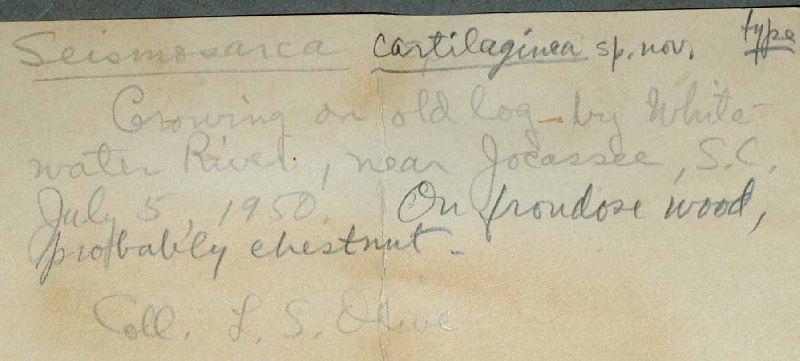 Seismosarca cartilaginea sp. nov. type
Growing on old log by White-
water River, near Jocassee, S.C.
July 5, 1950. On frondose wood,
probably chestnut.
Coll. L. S. Olive